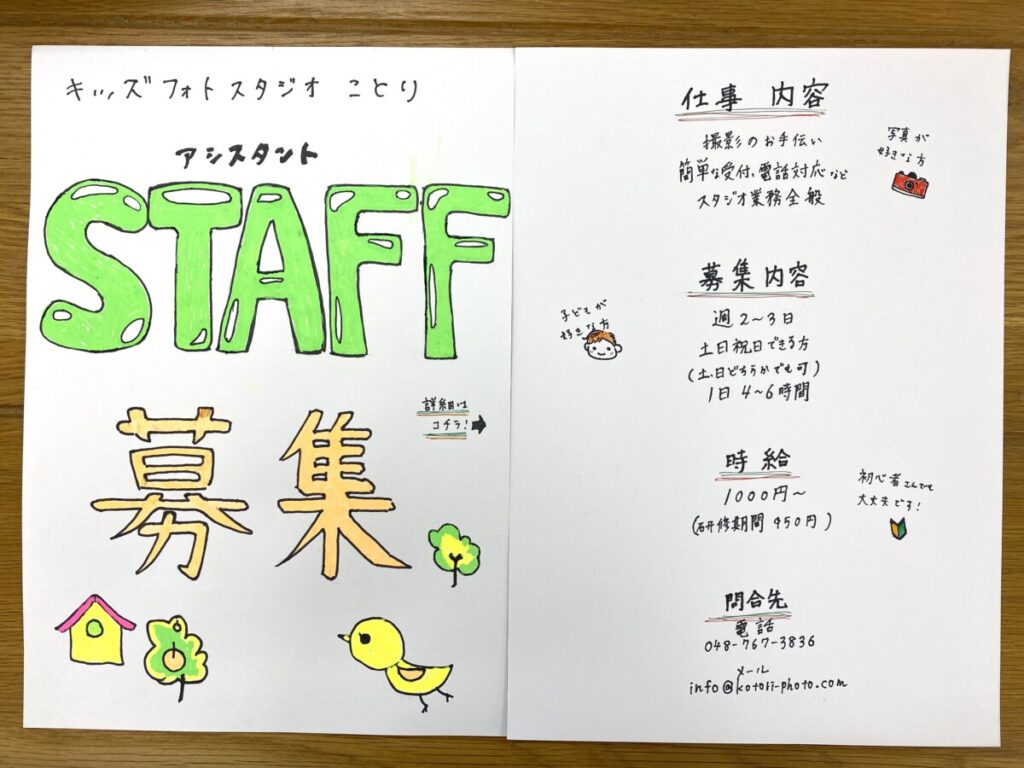 キッズフォトスタジオ ことり
アシスタント
STAFF
募集
詳細は
コチラ!
仕事 内容
撮影のお手伝い
簡単な受付、電話対応など
スタジオ業務全般
写真が
好きな方
募集内容
週2〜3日
土日祝日できる方
(土、日どちらかでも可)
1日 4〜6時間
子どもが
好きな方
時給
1000円〜
(研修期間 950円)
初心者さんでも
大丈夫です!
問合先
電話
048-767-3836
メール
info@kotori-photo.com